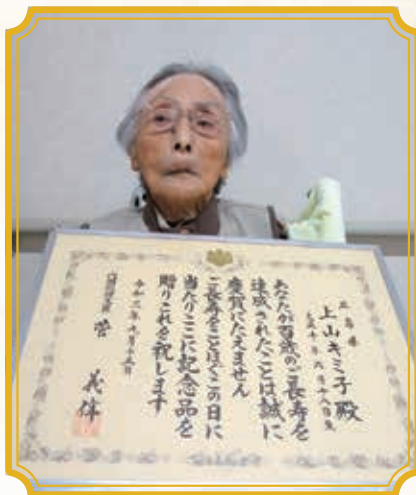 上山キミ子殿
あなたが百歳のご長寿を
達成されたことは誠に
慶賀にたえません
ご長寿をことほぐこの日に
当たりここに記念品を
贈りこれを祝します
令和三年九月十五日
内閣総理大臣 菅 義偉